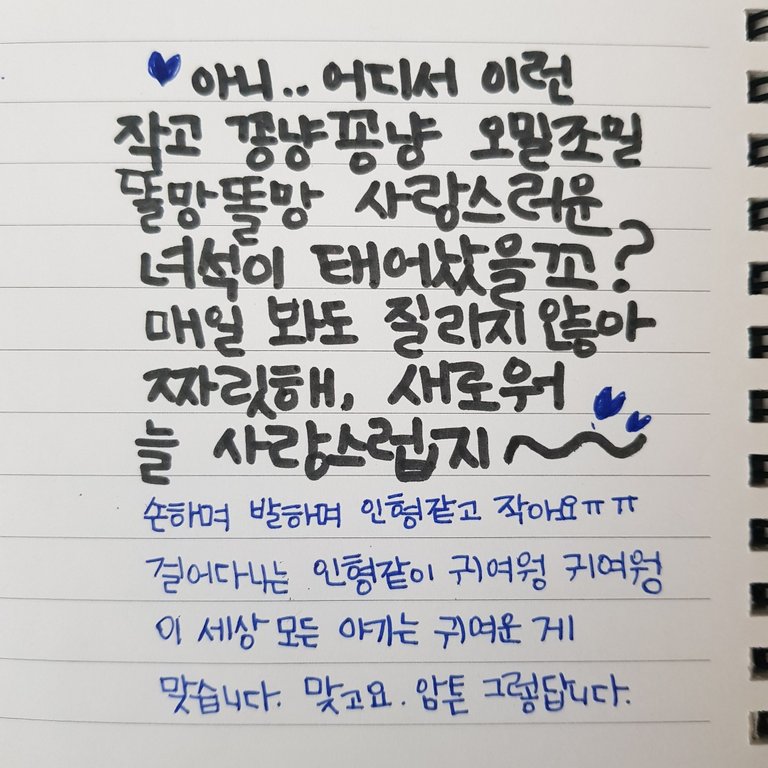 아니.. 어디서 이런
작고 꽁냥꽁냥 오밀조밀
똘망똘망 사랑스러운
녀석이 태어났을꼬?
매일 봐도 질리지 않아
짜릿해, 새로워
늘 사랑스럽지~
손하며 발하며 인형같고 작아요ㅠㅠ
걸어다니는 인형같이 귀여웡 귀여웡
이 세상 모든 아가는 귀여운 게
맞습니다. 맞고요. 암튼 그렇답니다.